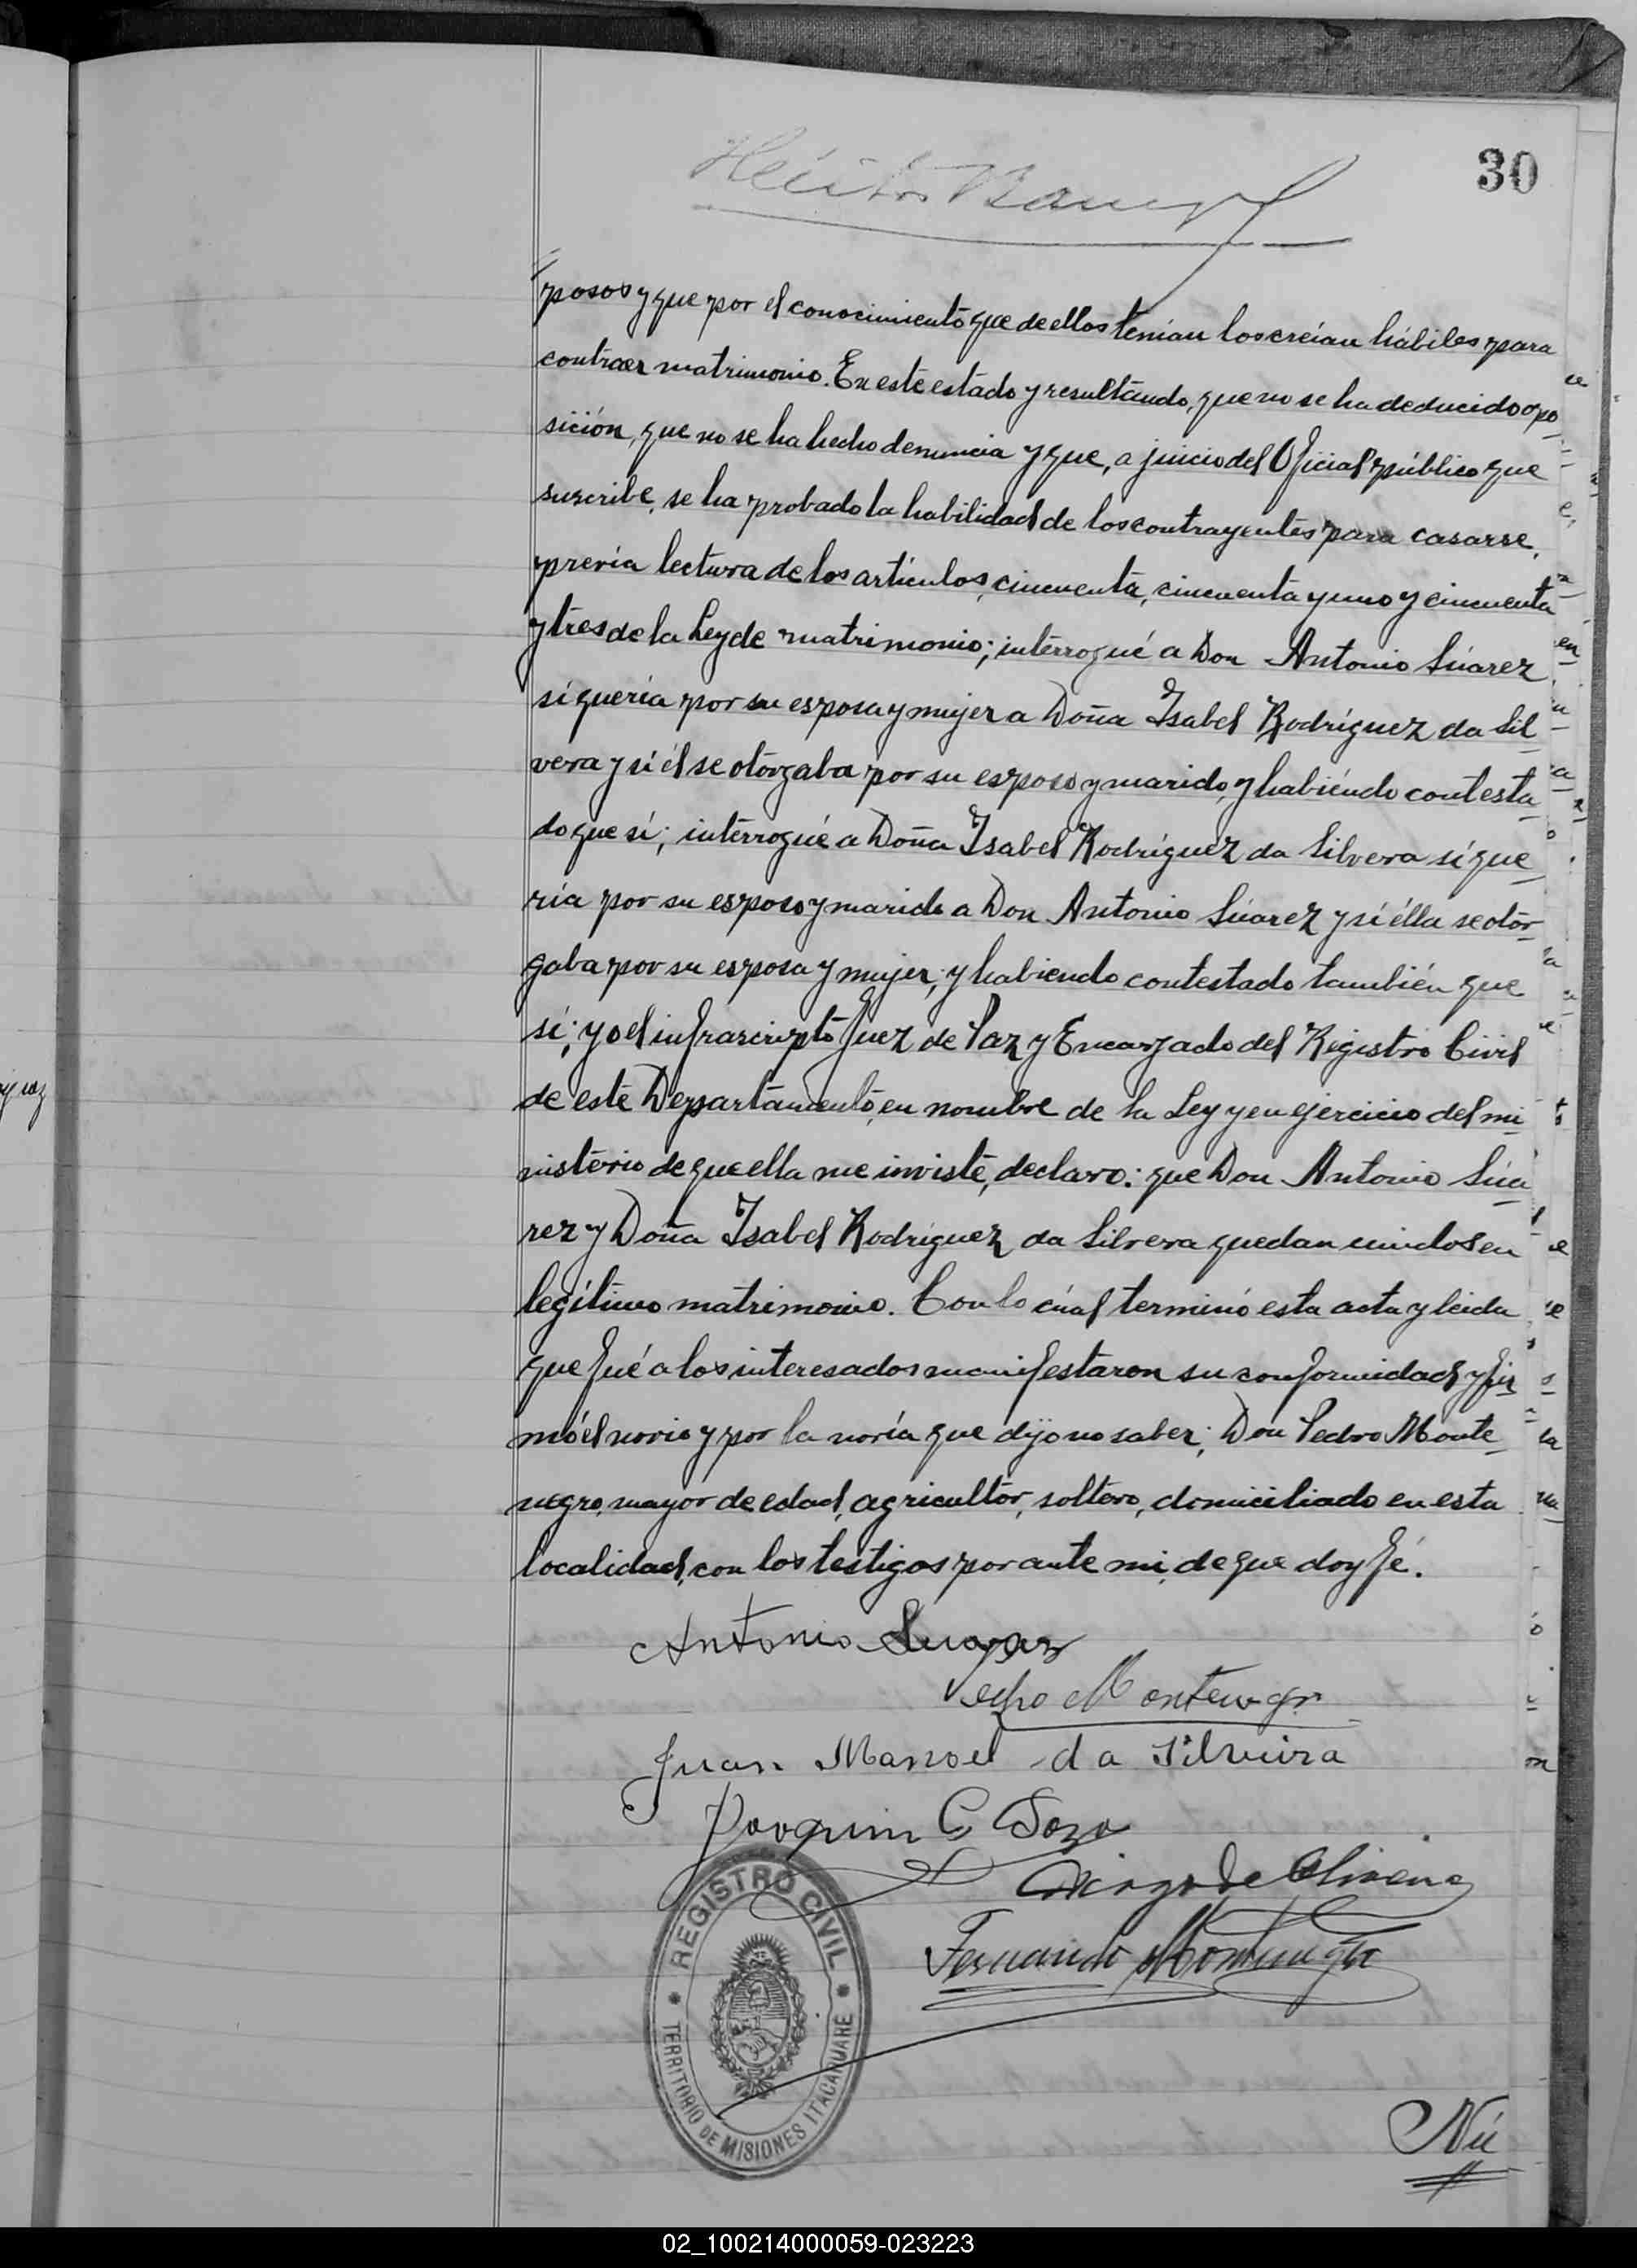 30
Héctor
posos y que por el conocimiento que de ellos tenían los creían hábiles para
contraer matrimonio. En este estado y resultando, que no se ha deducido opo
sición, que no se ha hecho denuncia y que, a juicio del Oficial público que
suscribe, se ha probado la habilidad de los contrayentes para casarse,
previa lectura de los artículos, cincuenta, cincuenta y uno y cincuenta
y tres de la Ley de matrimonio; interrogué a Don Antonio Súarez
sí quería por su esposa y mujer a Doña Isabel Rodríguez da Sil
vera y sí él se otorgaba por su esposo y marido, y habiéndo contesta
do que sí; interrogué a Doña Isabel Rodríguez da Silvera sí que
ría por su esposo y marido a Don Antonio Súarez y sí élla se otor
gaba por su esposa y mujer; y habiendo contestado también que
sí; yo el infrascripto Juez de Paz y Encargado del Registro Civil
de este Departamento, en nombre de la Ley y en ejercicio del mi
nisterio de que ella me inviste, declaro: que Don Antonio Súa
rez y Doña Isabel Rodríguez da Silvera quedan unidos en
legítimo matrimonio. Con lo cúal terminó esta acta y leida
que fué a los interesados manifestaron su conformidad y fir
mó el novio y por la novia que dijo no saber; Don Pedro Monte
negro, mayor de edad, agricultor, soltero, domiciliado en esta
localidad, con los testigos por ante mi, de que doy fé.
Antonio Suarez
Pedro Montenegro
Juan Manoel da Silveira
Joaquin C Soza
de Oliveira
REGISTRO CIVIL
Fernando Montenegro
TERRITORIO DE MISIONES ITACARUARE
Nú
02_100214000059-023223